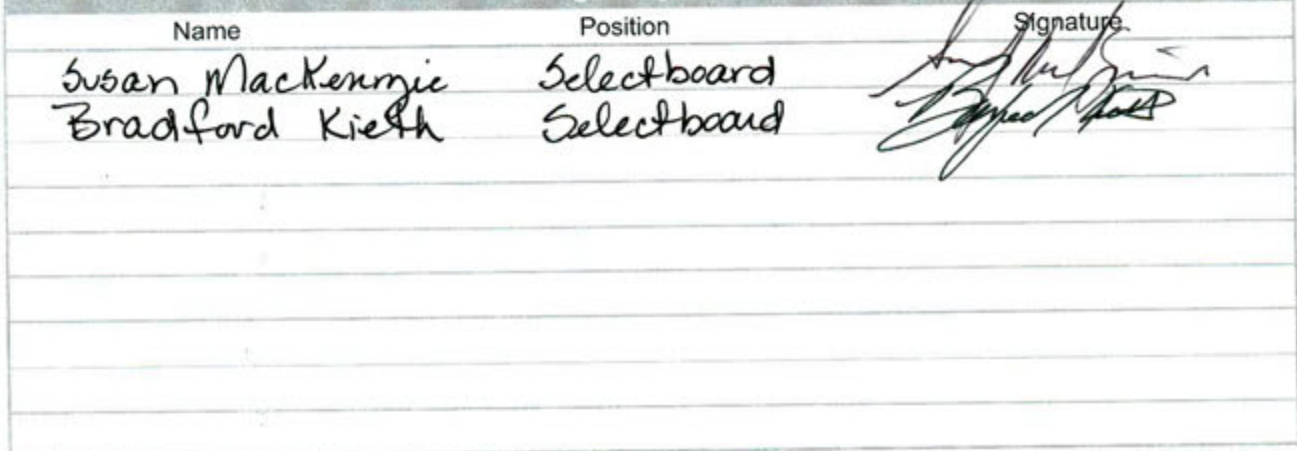 Name Position Signature
Susan MacKenzie Selectboard
Bradford Kieth Selectboard